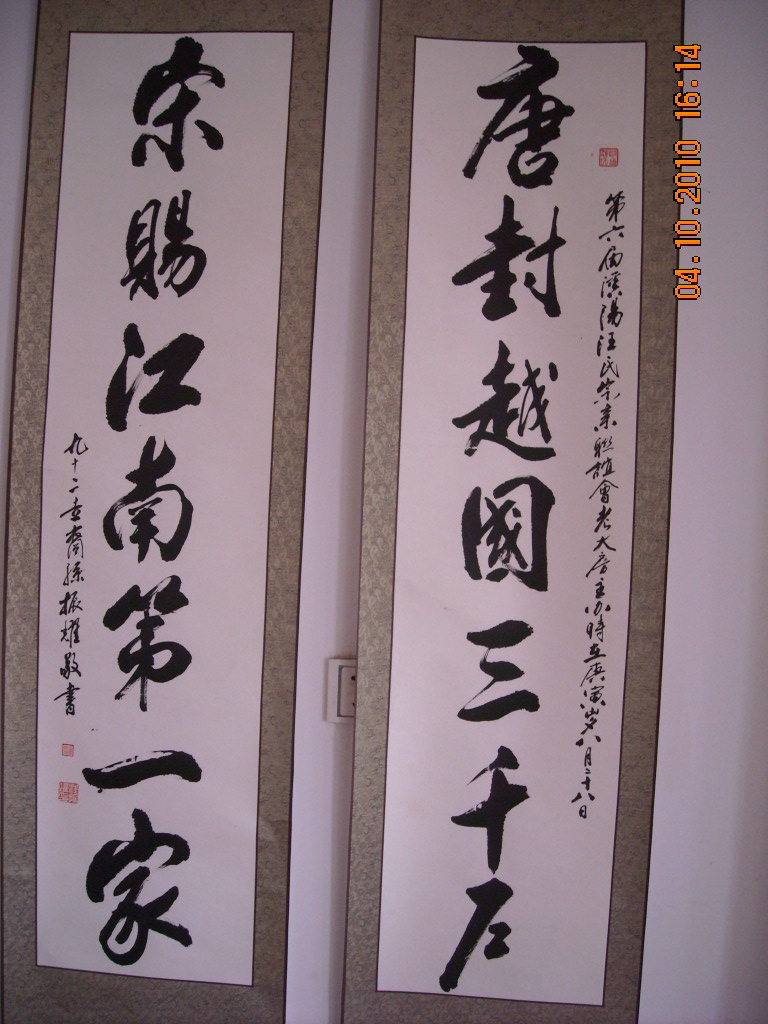 唐封越國三千户
第六届漢陽汪氏宗亲聯誼會老大房主办時在庚寅岁八月二十八日
宋賜江南第一家
九十二裔孫振耀敬書
04.10.2010 16:14